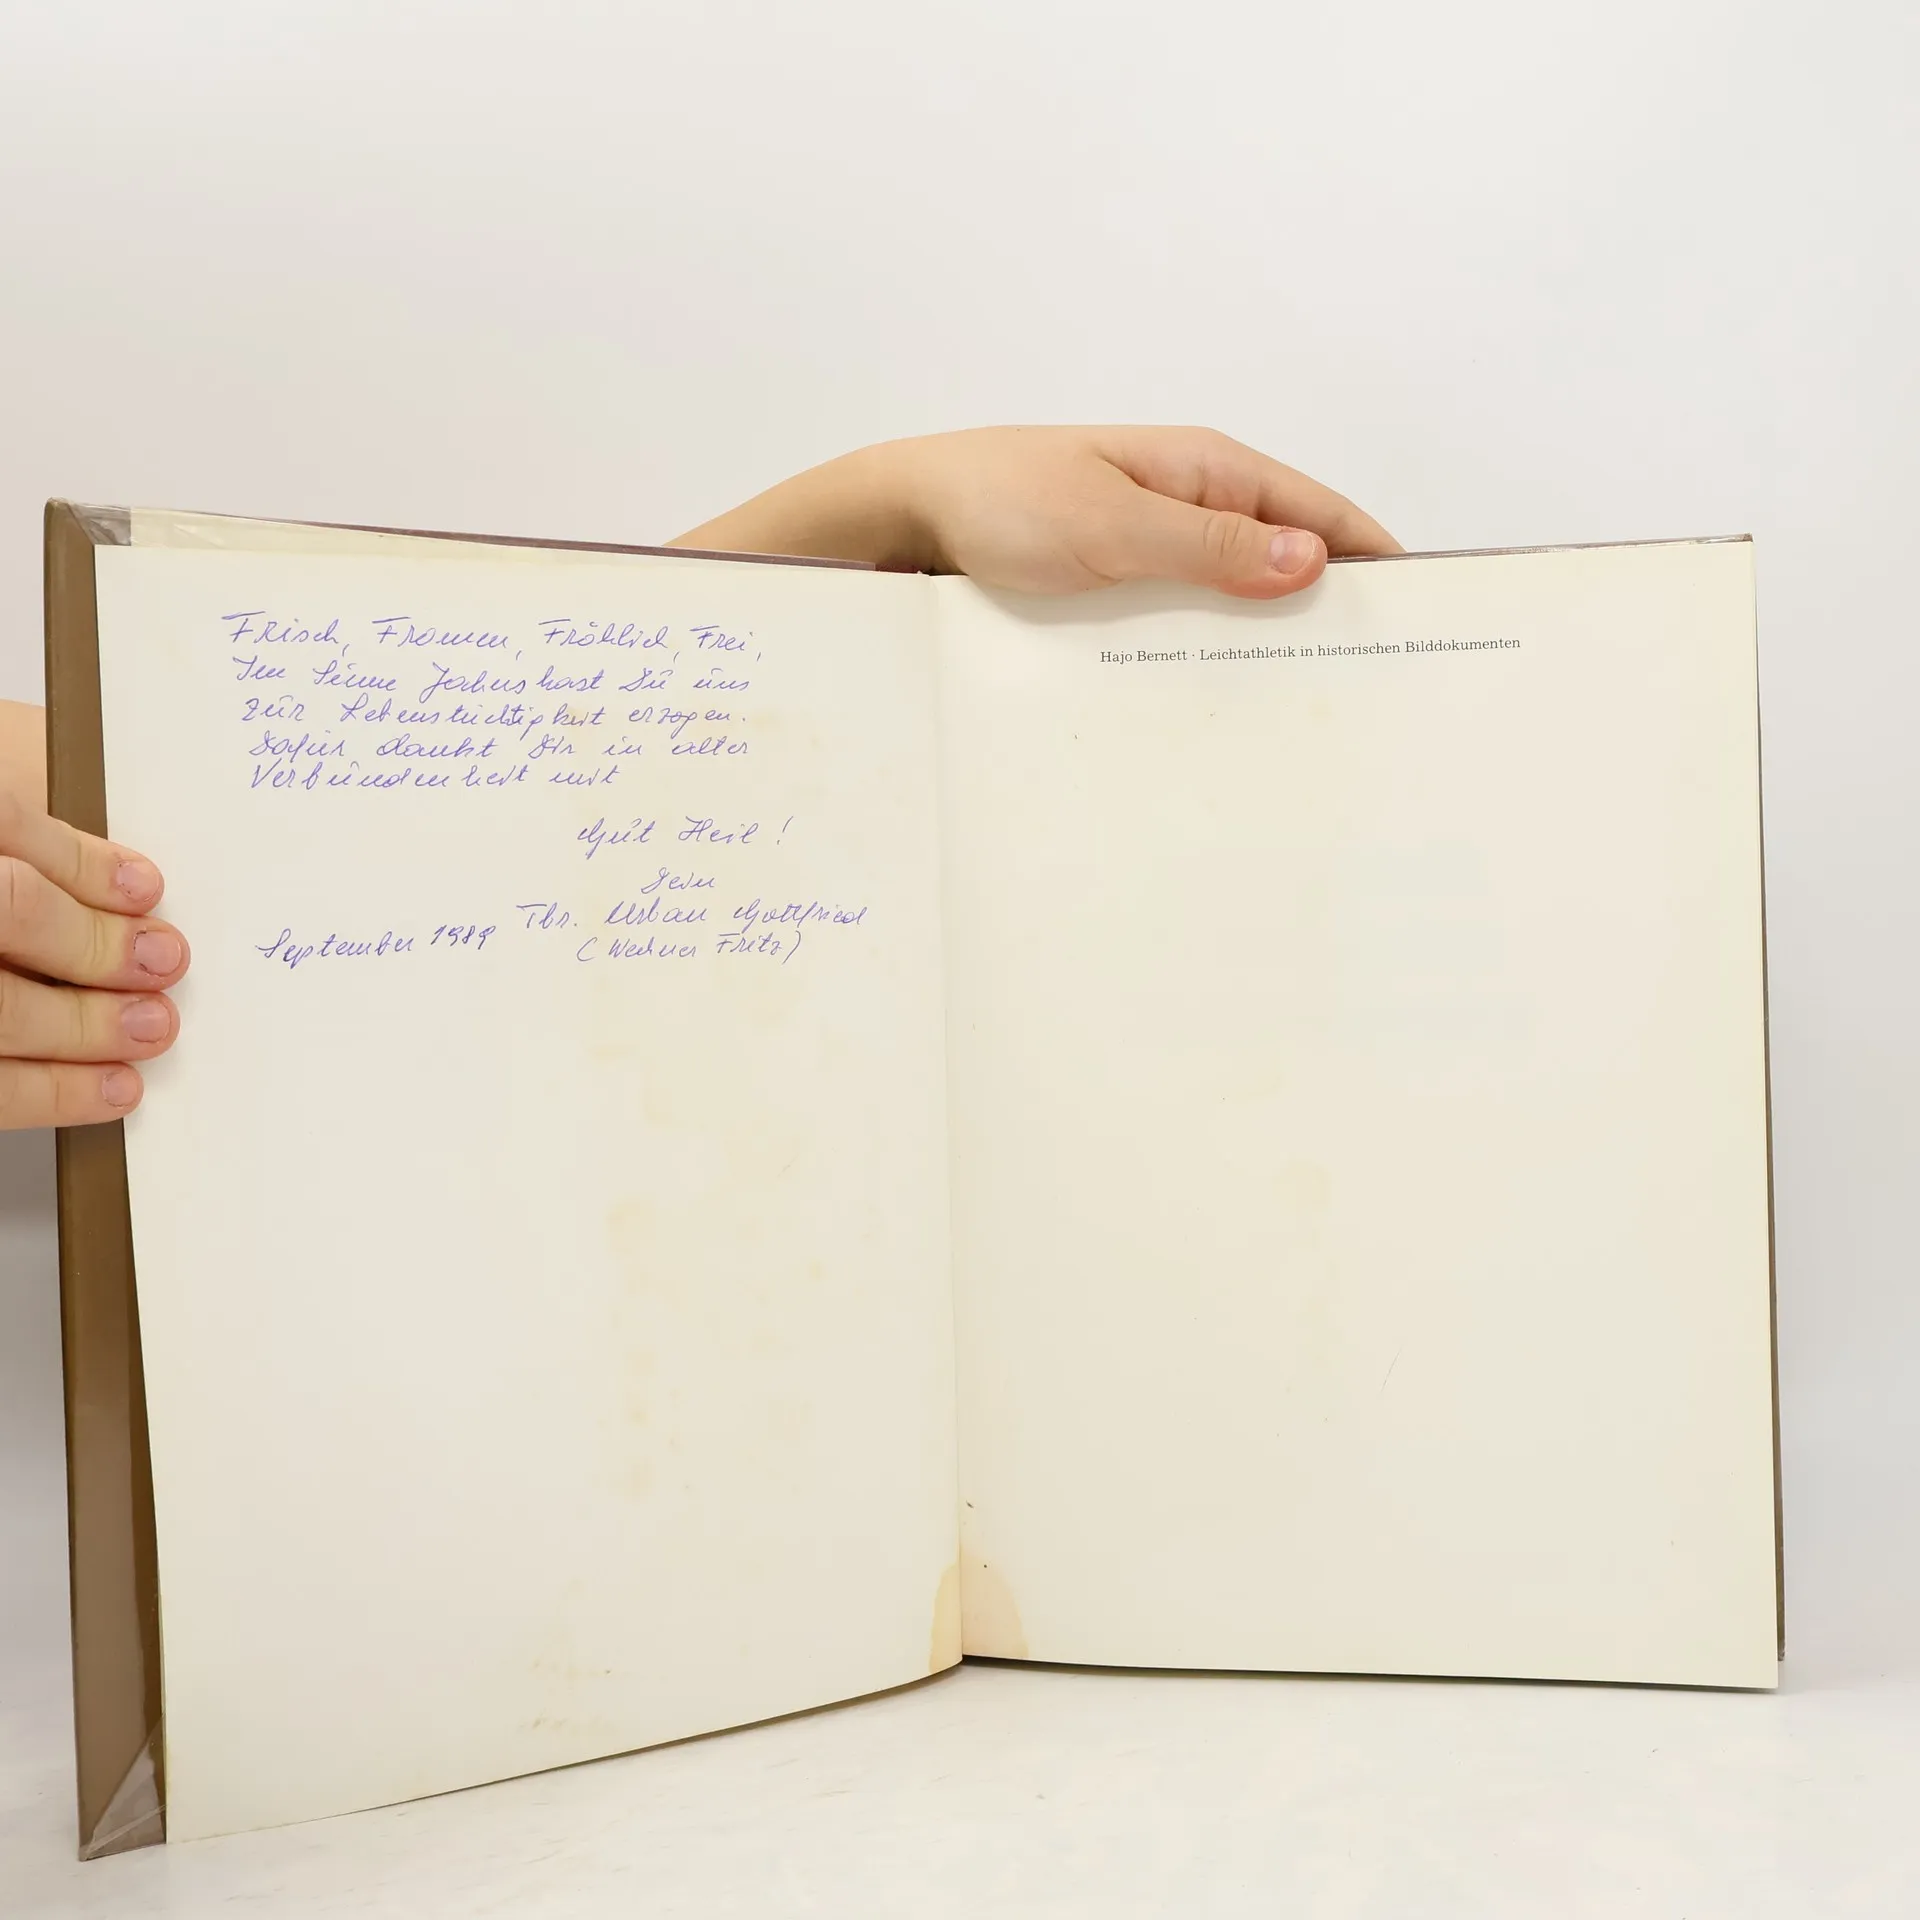 Frisch, Fromm, Fröhlich, Frei,
Im Sinne Jahns hast Du uns
zur Lebenstüchtigkeit erzogen.
Dafür dankt Dir in alter
Verbundenheit mit
Gut Heil!
Dein
Tbr. Urban Gottfried
(Werner Fritz)
September 1989
Hajo Bernett · Leichtathletik in historischen Bilddokumenten